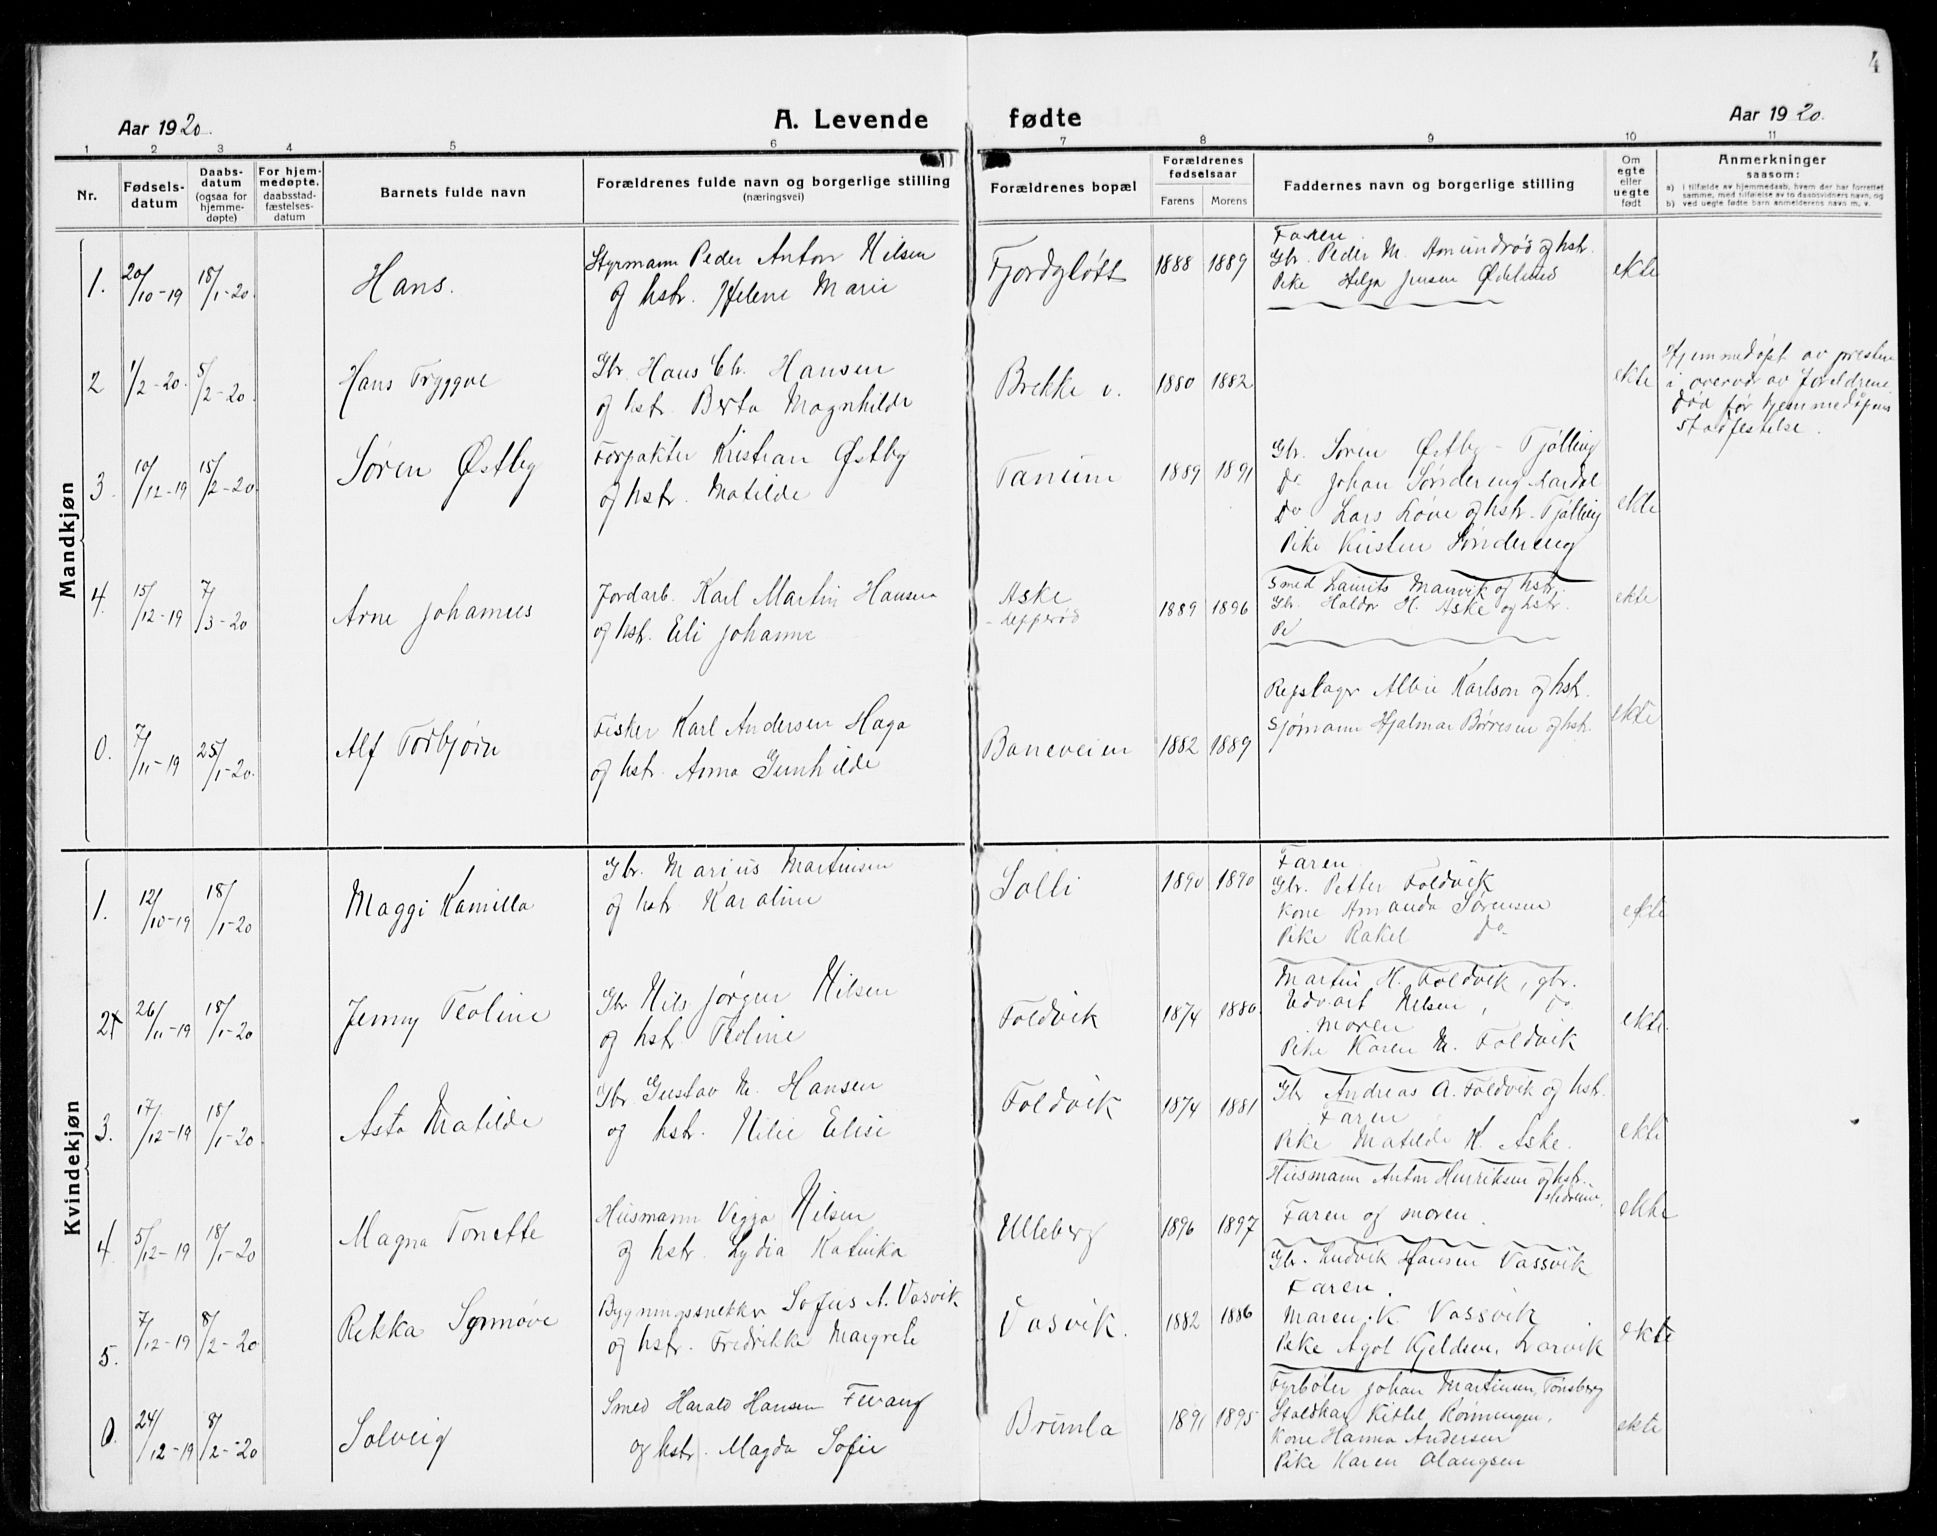 4
Aar 1920.
A. Levende fødte
Aar 1920.
1 2 3 4 5 6 7 8 9 10 11
Nr.
Fødsels-
datum
Daabs-
datum
(ogsaa for
hjemme-
døpte)
For hjem-
medøpte.
daabsstad-
fæstelses-
datum
Barnets fulde navn
Forældrenes fulde navn og borgerlige stilling
(næringsvei)
Forældrenes bopæl
Forældrenes
fødselsaar
Farens Morens
Faddernes navn og borgerlige stilling
Om
egte
eller
uegte
født
Anmerkninger
saasom:
a) i tilfælde av hjemmedaab, hvem der har forrettet
samme, med tilføielse av to daabsvidners navn, og
b) ved uegte fødte barn anmelderens navn m. v.
Mandkjøn
1. 20/10-19 18/1-20. Hans.
Styrmann Peder Anton Nilsen
og hstr. Helene Marie
Fjordgløtt 1888 1889
Faren.
Gbr. Peder M. Amundrød og hstr.
Pike Helga Jensen
ekte
2 1/2-20. 5/2-20. Hans Tryggve
Gbr. Hans Chr. Hansen
og hstr. Berta Magnhilde
Brekke v. 1880 1882
ekte
Hjemmedøpt av presten
i overvær av foreldrene
død før hjemmedåpens
stadfestelse.
3. 10/12-19 15/2-20. Søren Østby
Forpakter Kristian Østby
og hstr. Matilde
Tanum 1889 1891
Gbr. Søren Østby - Tjølling
Do Johan Søndereng Aardal
Do Lars Løve og hstr. Tjølling
Pike Kristen Søndereng
ekte
4. 15/12-19 7/3-20 Arne Johannes
Jordarb. Karl Martin Hansen
og hstr. Eli Johanne
Aske
1889 1896
Smed Laurits Manvik og hstr.
Gbr. Haldor H. Aske og hstr.
Pi
ekte
0. 7/11-19 25/1-20. Alf Torbjørn
Fisker Karl Andersen Haga
og hstr. Anna Gunhilde
Baneveien 1882 1889
Repslager Albin Karlson og hstr.
Sjømann Hjalmar Børresen og hstr.
ekte
Kvindekjøn
1. 12/10-19 18/1-20 Maggi Kamilla
Gbr. Marius Martinsen
og hstr. Karoline
Solli 1890 1890
Faren
Gbr. Petter Foldvik
Kone Amanda Sørensen
Pike Rakel Do
ekte
2 26/11-19 18/1-20 Jenny Teoline
Gbr Nils Jørgen Nilsen
og hstr. Teoline
Foldvik 1874 1880.
Martin H. Foldvik, gbr.
Edvart Nilsen, Do
Moren
Pike Karen M. Foldvik
ekte.
3. 17/12-19 18/1-20. Asta Matilde
Gbr Gustav M. Hansen
og hstr. Nilie Elise
Foldvik 1874 1881
Gbr Andreas A. Foldvik og hstr.
Faren
Pike Matilde K. Aske.
ekte
4. 5/12-19 18/1-20 Magna Tonette
Husmann Viggo Nilsen
og hstr. Lydia Katinka
Ulleberg 1896 1897
Husmann Anton Henriksen og hstr.
Faren og moren.
ekte
5. 7/12-19 8/2-20 Rekka Synnøve
Bygningssnekker Sofus A. Vasvik
og hstr. Fredrikke Margrete
Vasvik. 1882 1886
Gbr. Ludvik Hansen Vassvik
Faren.
Maren K Vassvik
Pike Agot Kjeldsen, Larvik
ekte
0. 24/12-19 8/2-20 Solveig
Smed Harald Hansen Fevang
og hstr. Magda Sofie
Brunla 1891 1895
Fyrbøter Johan Martinsen, Tønsberg
Staldkar Kittel Rønningen.
Kone Hanna Andersen
Pike Karen Olaugsen
ekte